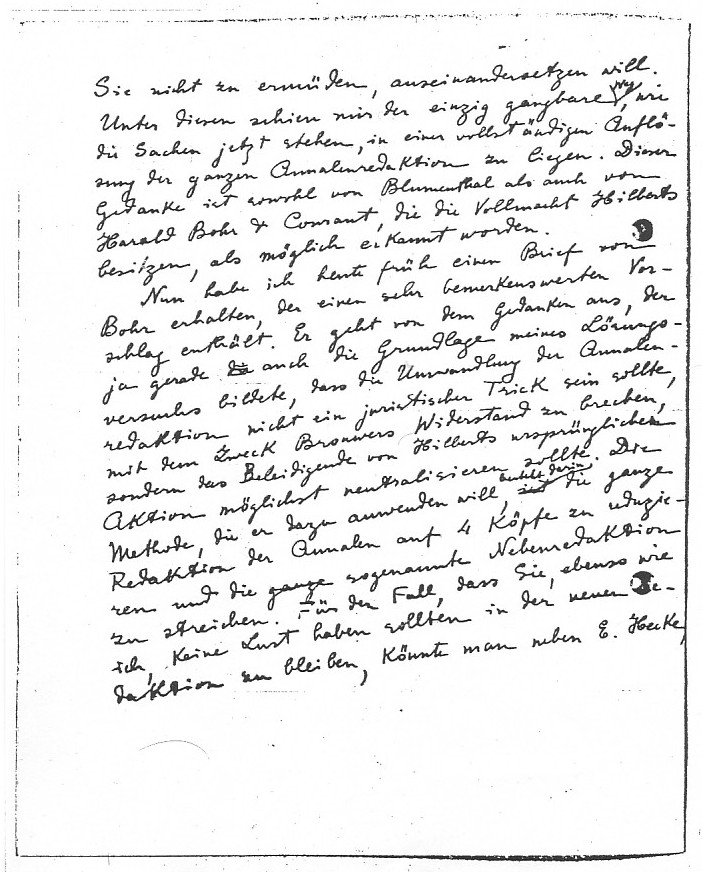 Sie nicht zu ermüden, auseinandersetzen will.
Unter diesen schien mir der einzig gangbare Weg, wie
die Sachen jetzt stehen, in einer vollständigen Auflö-
sung der ganzen Annalenredaktion zu liegen. Dieser
Gedanke ist sowohl von Blumenthal als auch von
Harald Bohr & Courant, die die Vollmacht Hilberts
besitzen, als möglich erkannt worden.
Nun habe ich heute früh einen Brief von
Bohr erhalten, der einen sehr bemerkenswerten Vor-
schlag enthält. Er geht von dem Gedanken aus, der
ja gerade die auch die Grundlage meines Lösungs-
versuchs bildete, dass die Umwandlung der Annalen-
redaktion nicht ein juristischer Trick sein sollte,
mit dem Zweck Brouwers Widerstand zu brechen,
sondern das Beleidigende von Hilberts ursprünglicher
Aktion möglichst neutralisieren sollte. Die
Methode, die er dazu anwenden will, besteht darin die ganze
Redaktion der Annalen auf 4 Köpfe zu reduzie-
ren und die ganze sogenannte Nebenredaktion
zu streichen. Für den Fall, dass Sie, ebenso wie
ich, keine Lust haben sollten in der neuen Re-
daktion zu bleiben, könnte man neben E. Hecke,